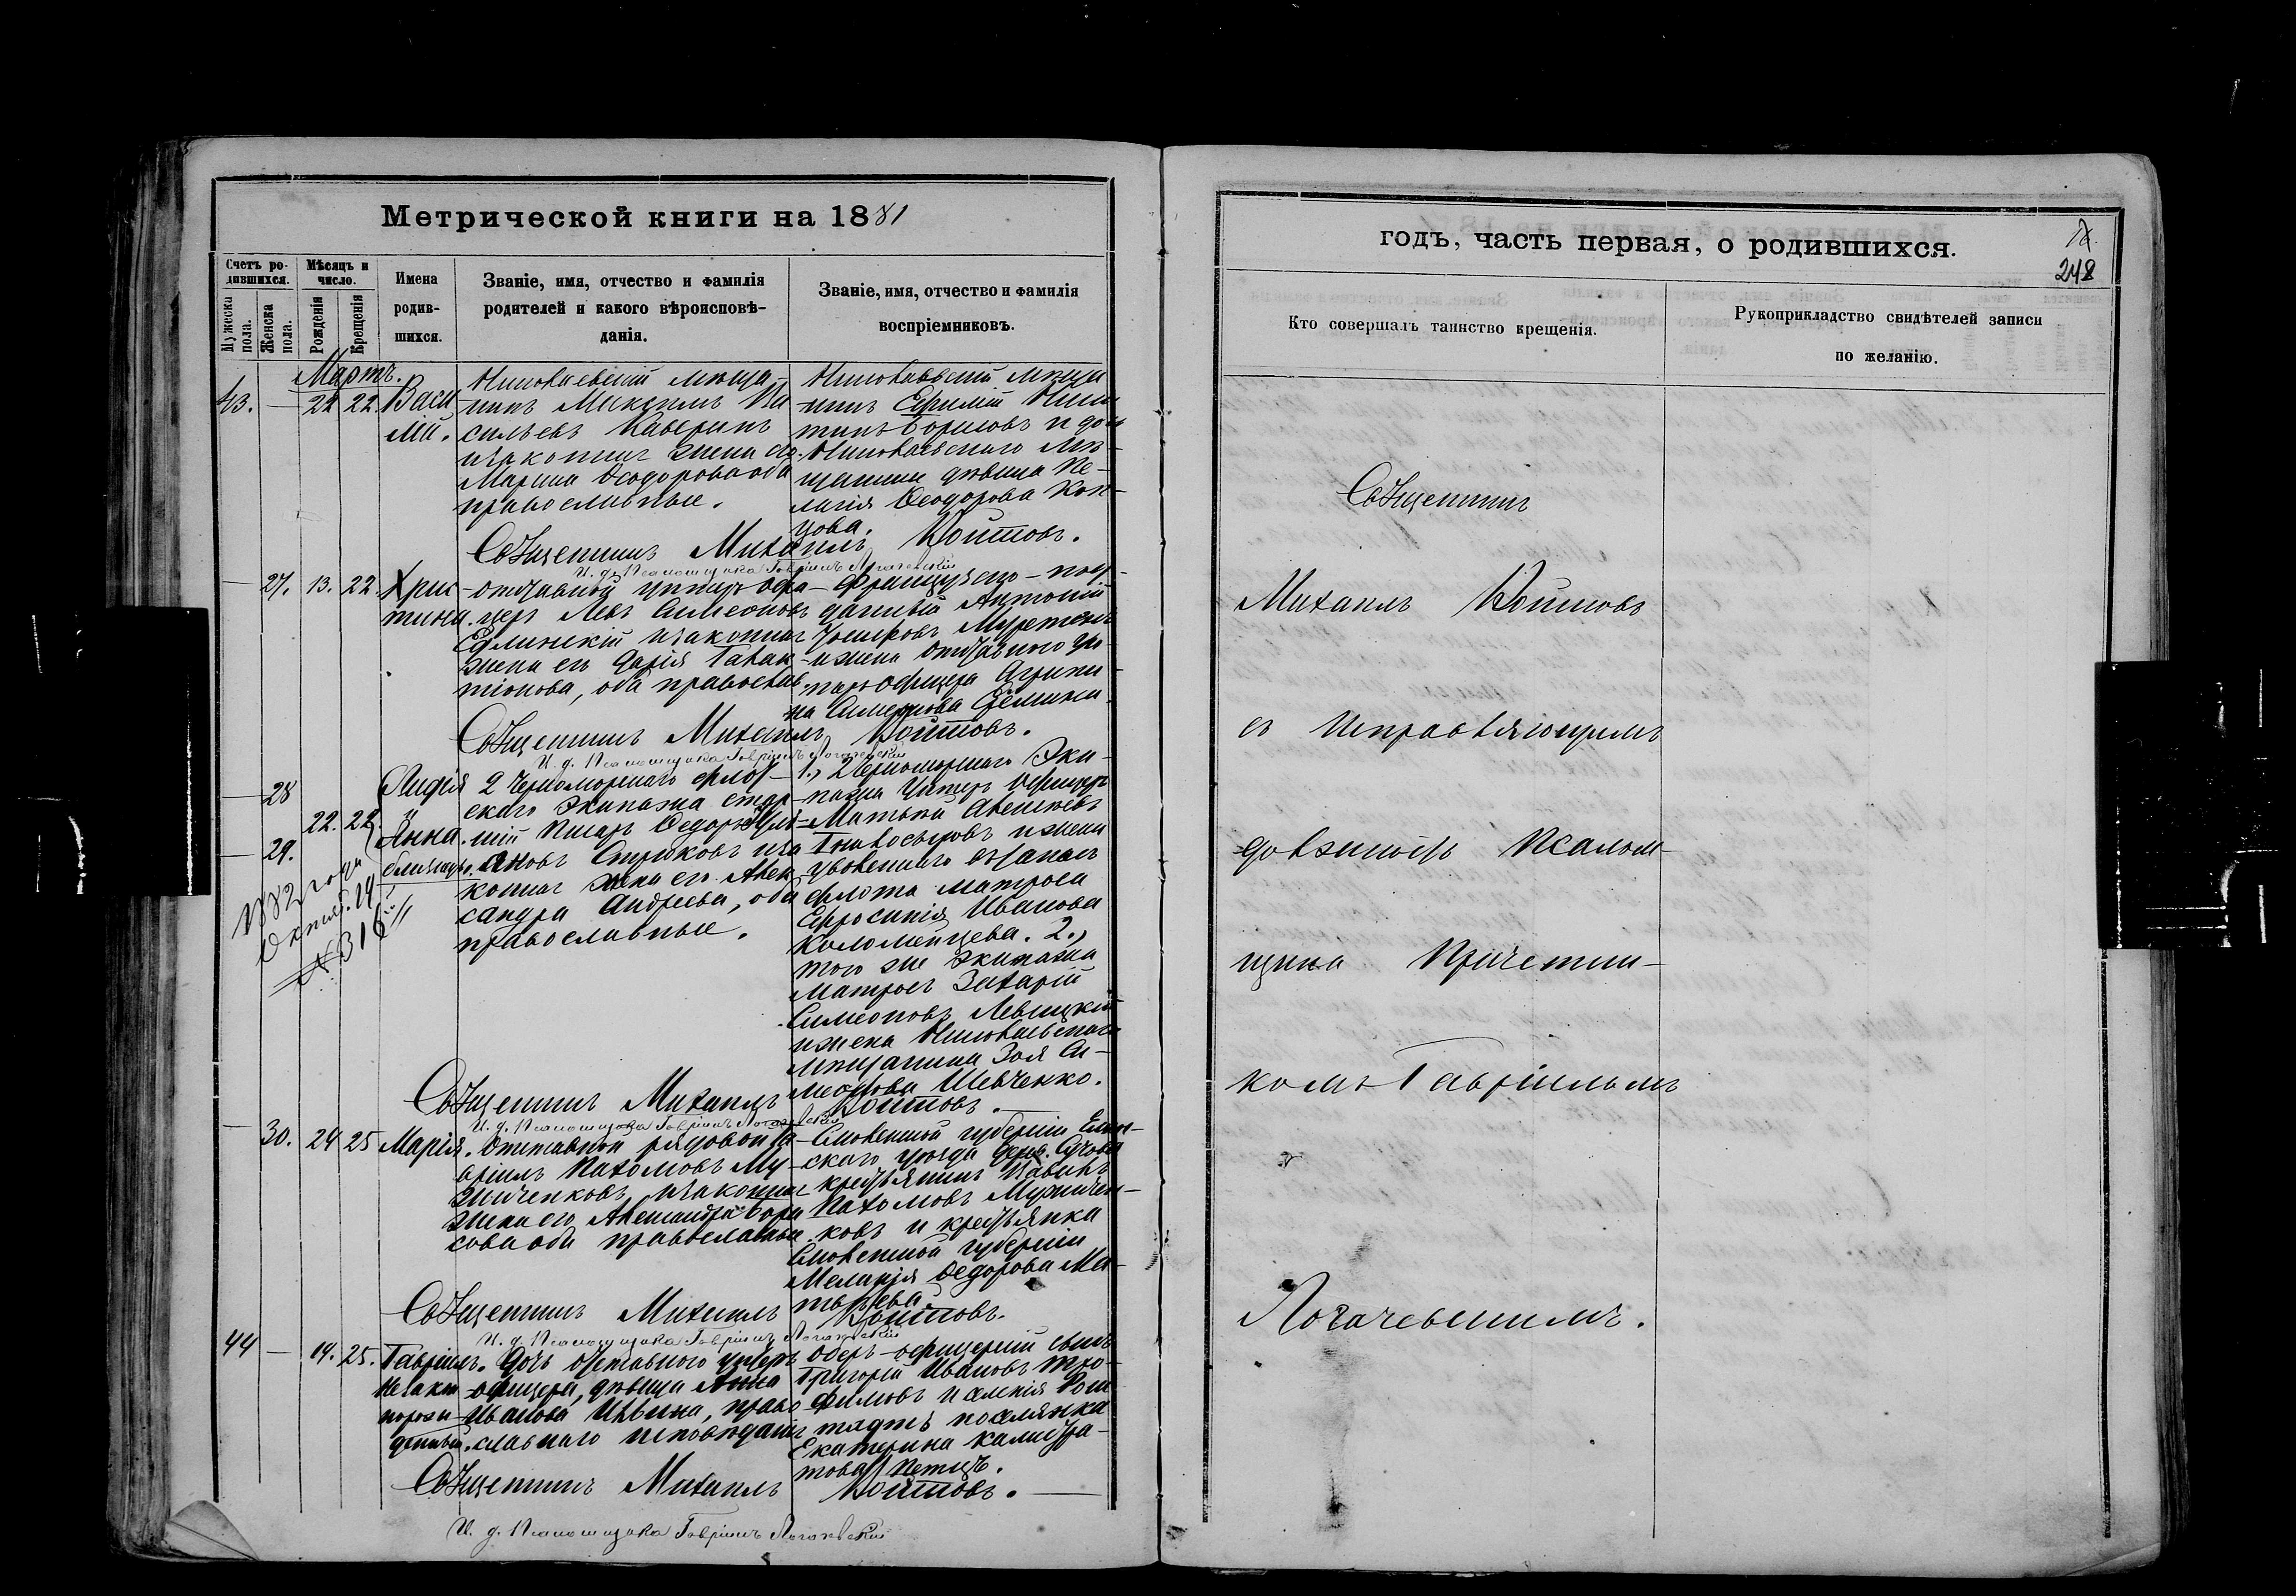 Метрической книги на 1881
Счетъ ро-
дившихся.
Мужеска
пола.
Женска
пола.
Мѣсяцъ и
число.
Рожденія
Крещенія
Имена
родив-
шихся.
Званіе, имя, отчество и фамилія
родителей и какого вѣроисповѣ-
данія.
Званіе, имя, отчество и фамилія
воспріемниковъ.
Мартъ.
43. — 22 22. Васи-
лій.
Николаевскій мѣща-
нинъ Максимъ Ва
сильевъ Каверинъ
и законная жена его
Марина Ѳеодорова оба
православные.
Николаевскій мѣща
нинъ Ефимій Ники
тинъ Борисовъ и дочь
Николаевскаго мѣ-
щанина дѣвица Пе-
лагія Ѳеодорова Коп-
цова.
Священникъ Михаилъ Войтовъ.
И. д. Псаломщика Гавріилъ Логачевскій
— 27. 13. 22. Хрис-
тина.
отставной унтеръ офи-
церъ Левъ Симеоновъ
и законная
жена его Дарія Галак-
тіонова, оба православ.
Французско-под-
данный Антоній
и жена отставного ун-
теръ офицера Агрипи-
на Симеонова
Священникъ Михаилъ Войтовъ.
И. д. Псаломщика Гавріилъ Логачевскій
— 28
— 29.
22. 22.
Лидія
и
Анна.
близнецы.
2 Черноморскаго флот-
скаго Экипажа стар-
шій писарь Ѳедоръ
Стрюковъ и за
конная жена его Алек
сандра Андреева, оба
православные.
1., 2 Черноморскаго Эки-
пажа Унтеръ Офицеръ
Матвѣй Алексѣевъ
и жена
уволеннаго въ запасъ
флота матроса
Ефросинія Иванова
Коломейцева. 2.,
того же экипажа
Матросъ Захарій
Симеоновъ Левицкій
и жена Николаевскаго
мѣщанина Зоя Си-
меонова Шевченко.
1882 года
Октяб. 19
№ 316
Священникъ Михаилъ Войтовъ.
И. д. Псаломщика Гавріилъ Логачевскій
— 30. 24 25 Марія.
Отставной рядовой
Пахомовъ Му-
жиченковъ, и законная
жена его Александра Бори
сова оба православные
Смоленской губерніи Ельн-
скаго уѣзда дерев.
крестьянинъ
Пахомовъ Мужичен-
ковъ и крестьянка
Смоленской губерніи
Меланія Ѳедорова Ма-
твѣева.
Священникъ Михаилъ Войтовъ.
И. д. Псаломщика Гавріилъ Логачевскій
44 — 19. 25. Гавріилъ.
Незакон
норожи
денный.
Дочь отставного унтеръ
офицера, дѣвица Анна
Иванова Ильина, право
славнаго исповѣданія
оберъ-офицерскій сынъ
Григорій Ивановъ Тро-
фимовъ и
поселянка
Екатерина Калистра-
това
Священникъ Михаилъ Войтовъ.
И. д. Псаломщика Гавріилъ Логачевскій
годъ, часть первая, о родившихся.
248
Кто совершалъ таинство крещенія.
Рукоприкладство свидѣтелей записи
по желанію.
Священникъ
Михаилъ Войтовъ
съ исправляющимъ
должность Псалом-
щика Причетни-
комъ Гавріиломъ
Логачевскимъ.